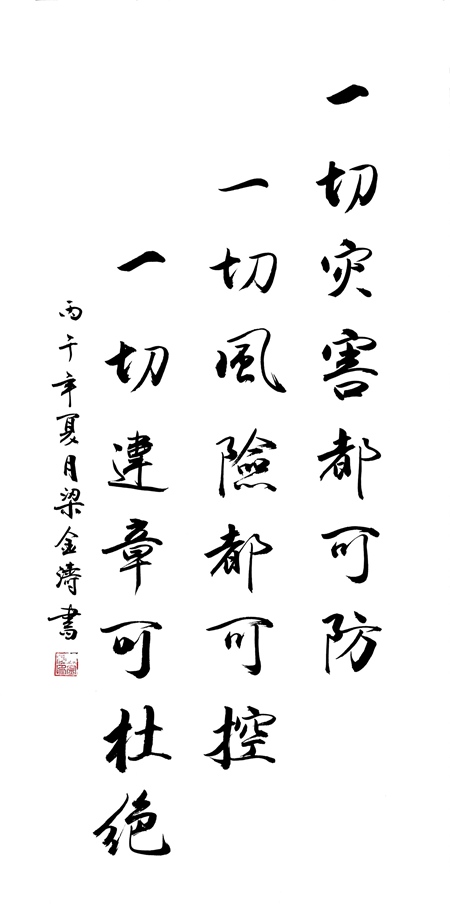 一切灾害都可防
一切風險都可控
一切違章可杜绝
丙午年夏月梁金濤書